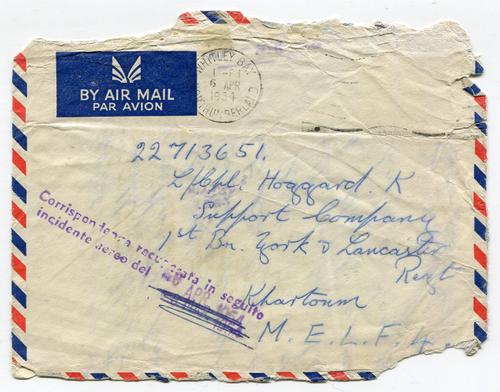 BY AIR MAIL
PAR AVION
WHITLEY BAY
6 APR
1954
NORTHUMBERLAND
22713651.
L/Cpl. Hoggard. K
Support Company
1st Bn. York & Lancaster
Regt
Khartoum
M.E.L.F. 4.
Corrispondenza recuperata in seguito
incidente aereo del
APR 1954